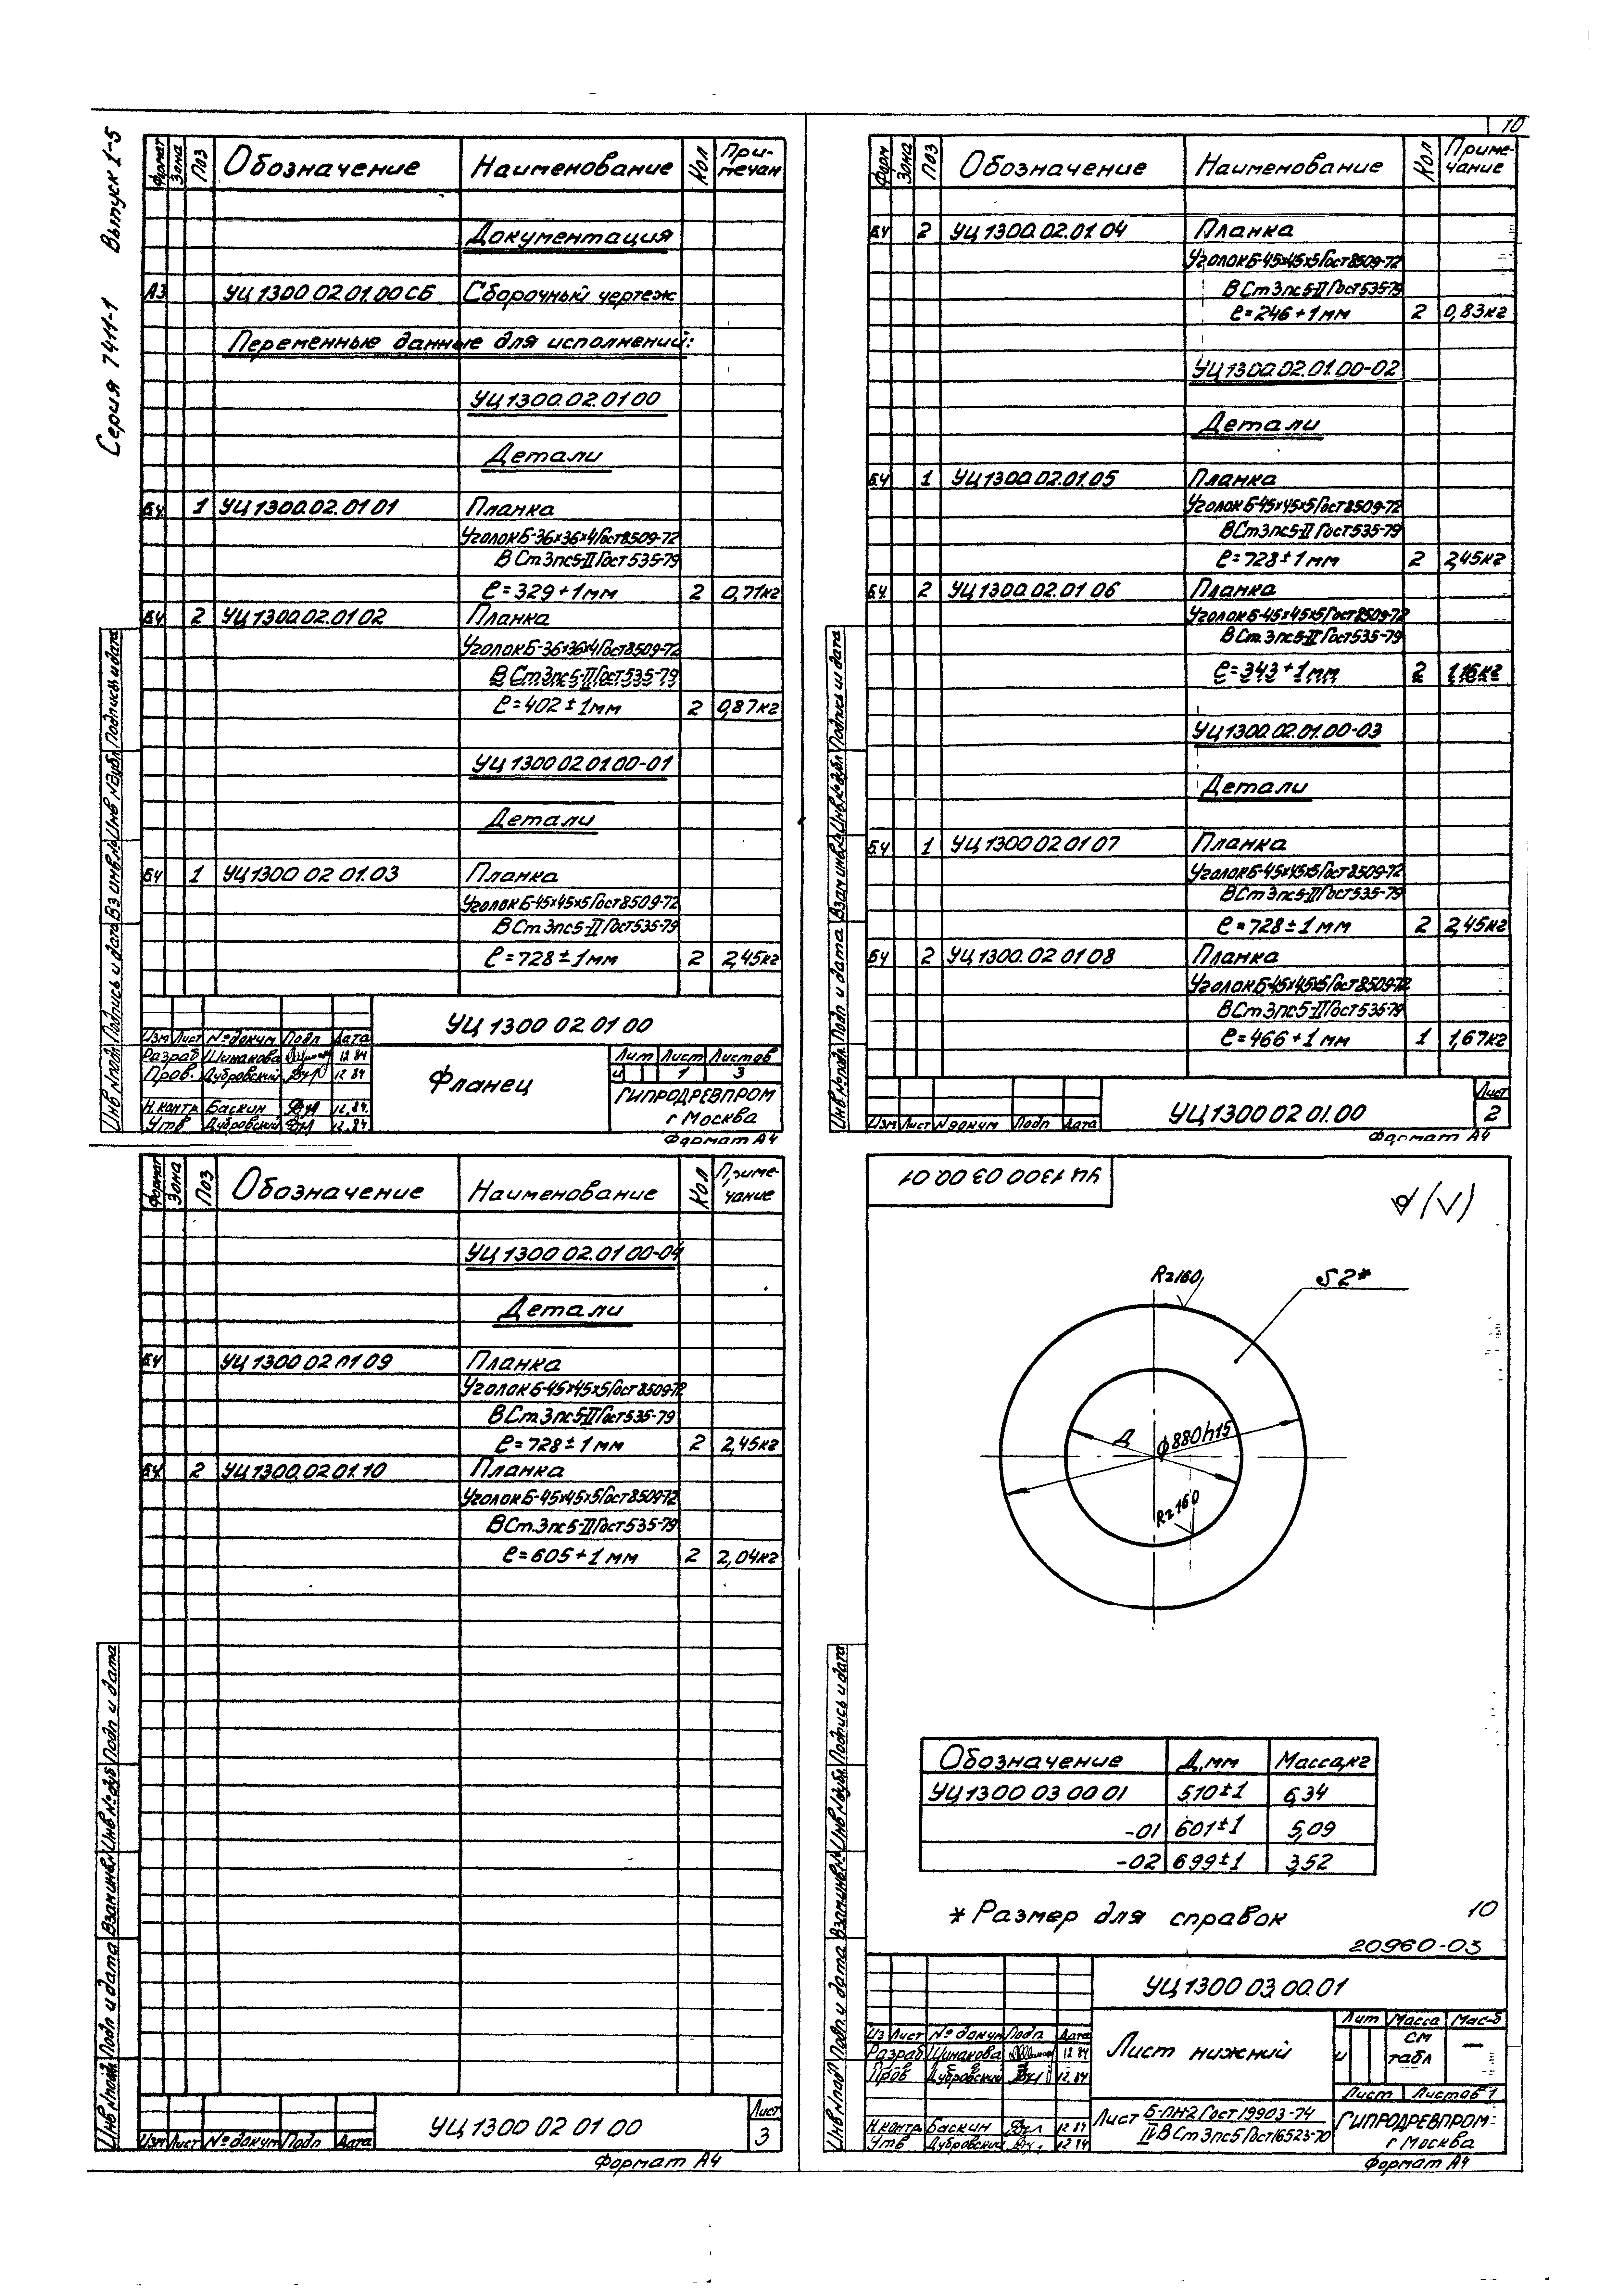 Серия 7411-1 Выпуск 1-5
10
Формат Зона Поз Обозначение Наименование Кол При-мечан
Документация
А3 УЦ 1300 02.01.00 СБ Сборочный чертеж
Переменные данные для исполнений:
УЦ 1300.02.01 00
Детали
БЧ 1 УЦ 1300.02.01 01 Планка
Уголок Б-36×36×4 Гост 8509-72
В Ст 3 пс 5-II Гост 535-79
ℓ=329+1мм 2 0,71кг
БЧ 2 УЦ 1300.02.01 02 Планка
Уголок Б-36×36×4 Гост 8509-72
В Ст 3 пс 5-II Гост 535-79
ℓ=402±1мм 2 0,87кг
УЦ 1300 02.01.00-01
Детали
БЧ 1 УЦ 1300 02 01.03 Планка
Уголок Б-45×45×5 Гост 8509-72
В Ст 3 пс 5-II Гост 535-79
ℓ=728±1мм 2 2,45кг
УЦ 1300 02.01 00
Изм Лист № докум Подп Дата
Разраб Шинакова 12 84
Пров. Дубровский 12.84
Н.контр Баскин 12.84
Утв Дубровский 12.84
Фланец
Лит Лист Листов
и 1 3
ГИПРОДРЕВПРОМ
г Москва
Формат А4
Инв №подл Подпись и дата Вз инв № Инв № дубл Подпись и дата
Форм Зона Поз Обозначение Наименование Кол Приме-чание
БЧ 2 УЦ 1300.02.01 04 Планка
Уголок Б-45×45×5 Гост 8509-72
В Ст 3 пс 5-II Гост 535-79
ℓ=246+1мм 2 0,83кг
УЦ 1300.02.01.00-02
Детали
БЧ 1 УЦ 1300.02.01.05 Планка
Уголок Б-45×45×5 Гост 8509-72
В Ст 3 пс 5-II Гост 535-79
ℓ=728±1мм 2 2,45кг
БЧ 2 УЦ 1300.02.01 06 Планка
Уголок Б-45×45×5 Гост 8509-72
В Ст 3 пс 5-II Гост 535-79
ℓ=343+1мм 2 1,16кг
УЦ 1300.02.01.00-03
Детали
БЧ 1 УЦ 1300 02 01 07 Планка
Уголок Б-45×45×5 Гост 8509-72
В Ст 3 пс 5-II Гост 535-79
ℓ=728±1мм 2 2,45кг
БЧ 2 УЦ 1300.02 01 08 Планка
Уголок Б-45×45×5 Гост 8509-72
В Ст 3 пс 5-II Гост 535-79
ℓ=466+1мм 1 1,67кг
Изм Лист № докум Подп Дата
УЦ 1300 02 01.00
Лист
2
Формат А4
Инв № подл. Подп и дата Взам инв № Инв № дубл Подпись и дата
Формат Зона Поз Обозначение Наименование Кол Приме-чание
УЦ 1300 02.01 00-04
Детали
БЧ УЦ 1300 02 01 09 Планка
Уголок Б-45×45×5 Гост 8509-72
В Ст 3 пс 5-II Гост 535-79
ℓ=728±1мм 2 2,45кг
БЧ 2 УЦ 1300.02 01.10 Планка
Уголок Б-45×45×5 Гост 8509-72
В Ст 3 пс 5-II Гост 535-79
ℓ=605+1мм 2 2,04кг
Изм Лист № докум Подп Дата
УЦ 1300 02 01 00
Лист
3
Формат А4
Инв № подл Подп и дата Взам инв № Инв № дуб Подп и дата
УЦ 1300 03 00 01
(√)
Rz160
S2*
Д
ϕ880h15
Rz160
Обозначение Д,мм Масса,кг
УЦ 1300 03 00 01 510±1 6,34
-01 601±1 5,09
-02 699±1 3,52
* Размер для справок
10
20960-03
УЦ 1300 03.00.01
Из Лист № докум Подп Дата
Разраб Шинакова 12 84
Пров Дубровский 12.84
Н.контр Баскин 12 84
Утв Дубровский 12 84
Лист нижний
Лит Масса Мас-б
и см табл —
Лист Листов 1
Лист Б-ПН-2 Гост 19903-74
IV-В Ст 3 пс 5 Гост 16523-70
ГИПРОДРЕВПРОМ
г Москва
Формат А4
Инв № подл Подп. и дата Взам инв № Инв № дубл. Подпись и дата